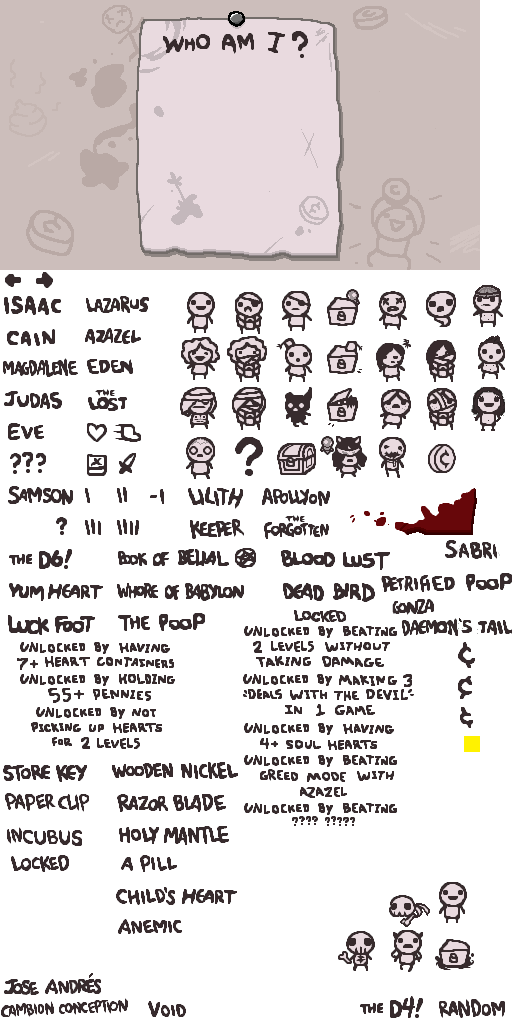 WHO AM I?
ISAAC
LAZARUS
CAIN
AZAZEL
MAGDALENE
EDEN
JUDAS
THE LOST
EVE
???
?
SAMSON
-1
LILITH
APOLLYON
?
KEEPER
THE FORGOTTEN
THE D6!
BOOK OF BELIAL
BLOOD LUST
SABRI
YUM HEART
WHORE OF BABYLON
DEAD BIRD
PETRIFIED POOP
GONZA
LUCK FOOT
THE POOP
LOCKED
DAEMON'S TAIL
UNLOCKED BY HAVING
7+ HEART CONTAINERS
UNLOCKED BY HOLDING
55+ PENNIES
UNLOCKED BY NOT
PICKING UP HEARTS
FOR 2 LEVELS
UNLOCKED BY BEATING
2 LEVELS WITHOUT
TAKING DAMAGE
UNLOCKED BY MAKING 3
"DEALS WITH THE DEVIL"
IN 1 GAME
UNLOCKED BY HAVING
4+ SOUL HEARTS
UNLOCKED BY BEATING
GREED MODE WITH
AZAZEL
UNLOCKED BY BEATING
???? ?????
¢
¢
¢
STORE KEY
WOODEN NICKEL
PAPER CLIP
RAZOR BLADE
INCUBUS
HOLY MANTLE
LOCKED
A PILL
CHILD'S HEART
ANEMIC
JOSE ANDRÉS
CAMBION CONCEPTION
VOID
THE D4!
RANDOM